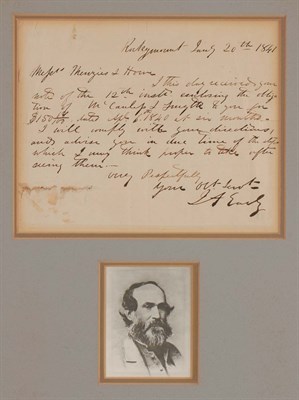 Rockymount July 20th 1841
Messrs Menzies & Howe
I this day received your
note of the 12th inst. enclosing the obliga
tion of & Smyth to you for
dated Sept 1840 at six months.
I will comply with your directions,
and advise you in due time of the steps
which I may think proper to take after
seeing them.
Very Respectfully
Your obt Servt
J A Early